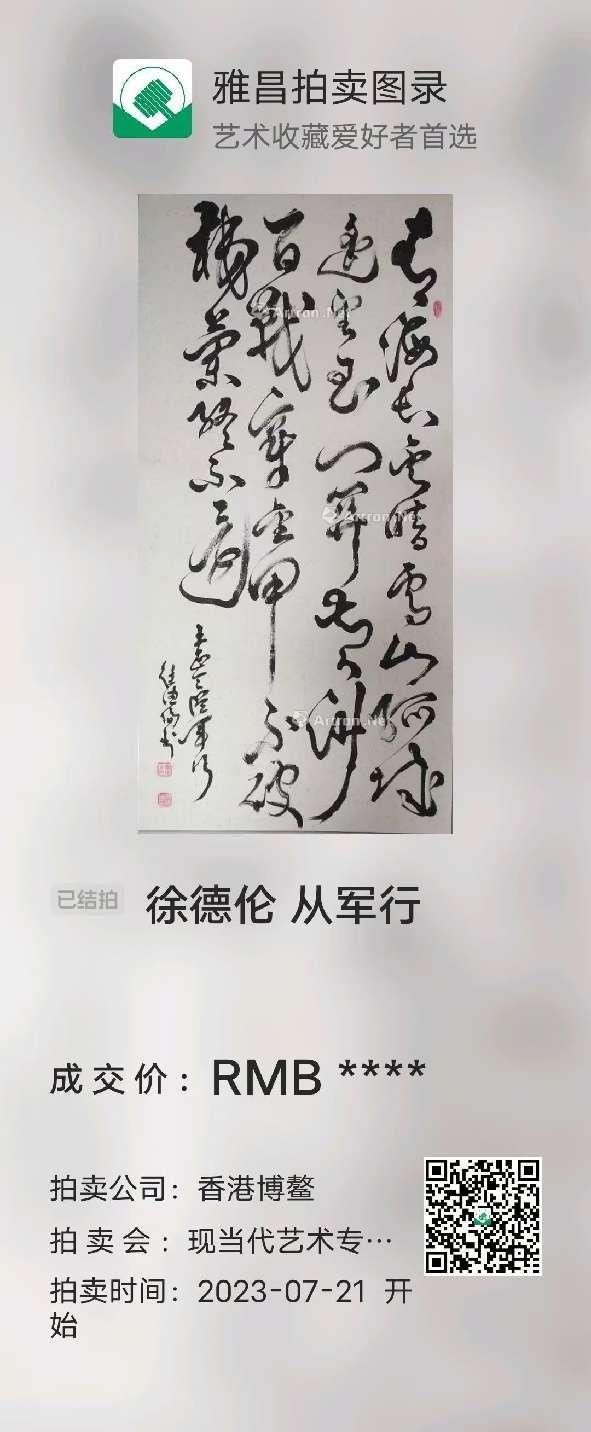 雅昌拍卖图录
艺术收藏爱好者首选
青海长雲暗雪山孤城
遥望玉门關黄沙
百戰穿金甲不破
樓蘭終不還
王昌龄從軍行
Artron.Net
Artron.Net
Artron.Net
已结拍
徐德伦 从军行
成交价：RMB ****
拍卖公司：香港博鳌
拍卖会：现当代艺术专…
拍卖时间：2023-07-21 开
始